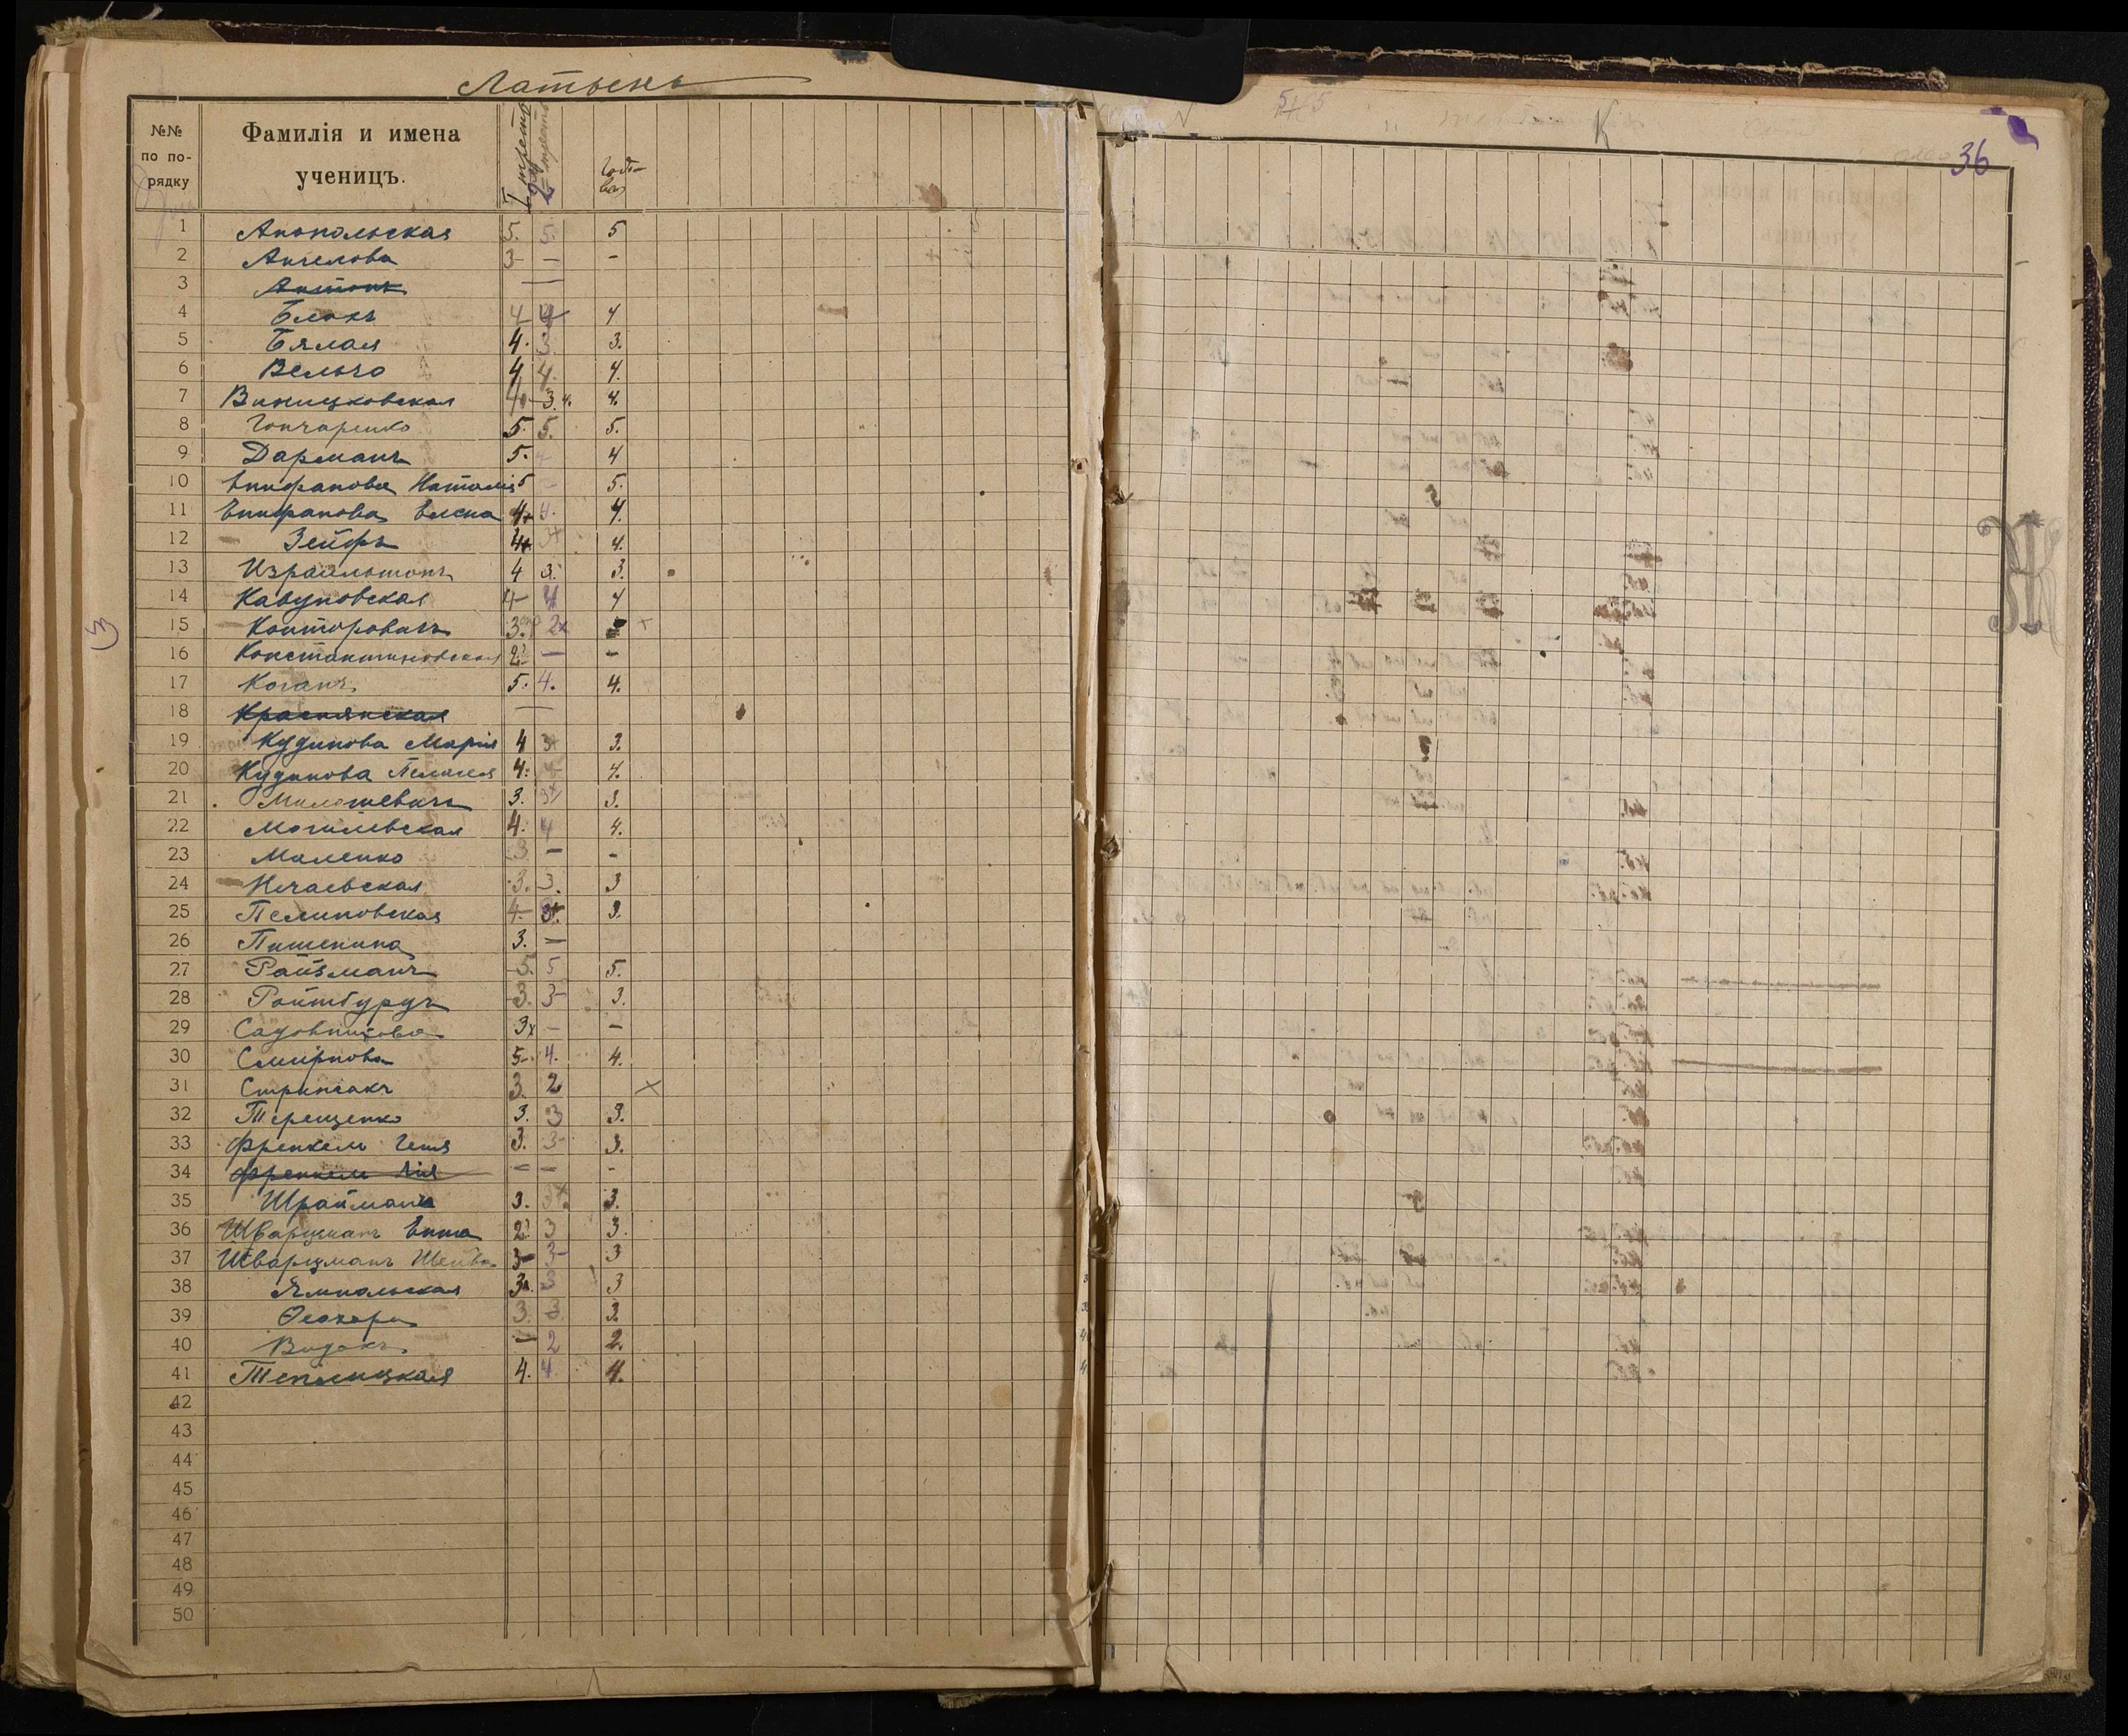 Латынь
№№ по порядку Фамилія и имена ученицъ. I треть 2 треть Годовая
36
1 Анопольская 5. 5. 5
2 Ангелова 3 — -
3 Антонъ —
4 Блокъ 4 4 4
5 Бялая 4. 3. 3.
6 Вельго 4 4. 4.
7 Виницковская 4 3. 4. 4.
8 Гончаренко 5. 5. 5.
9 Дарманъ 5. 4 4
10 Епифанова Наталія 5 5.
11 Епифанова Елена 4+ 4. 4.
12 Зейфъ 4+ 3+ 4.
13 Израильтонъ 4 3. 3.
14 Кавуновская 4- 4 4
15 Конторовичъ 3. 2х
16 Константиновская 2 — -
17 Коганъ 5. 4. 4.
18 Краснянская —
19 Кудинова Марія 4 3+ 3.
20 Кудинова Пелагея 4. 4. 4.
21 Милошевичъ 3. 3+ 3.
22 Могилевская 4. 4 4.
23 Маленко 3 — -
24 Нечаевская 3. 3. 3
25 Пелиновская 4- 3+. 3.
26 Пишенина 3. —
27 Райзманъ 5. 5 5.
28 Ройтбурдъ 3. 3- 3.
29 Садовникова 3х — -
30 Смирнова 5-. 4. 4.
31 Стринсакъ 3. 2 х
32 Терещенко 3. 3 3.
33 Френкель Геня 3. 3- 3.
34 Френкель Лія — — -
35 Шрайманъ 3. 3+ 3.
36 Шварцманъ Ента 2? 3 3.
37 Шварцманъ Шейва 3- 3- 3
38 Ямпольская 3. 3 3
39 Феохари 3. 3. 3.
40 Видокъ — 2 2.
41 Теплицкая 4. 4 4.
42
43
44
45
46
47
48
49
50